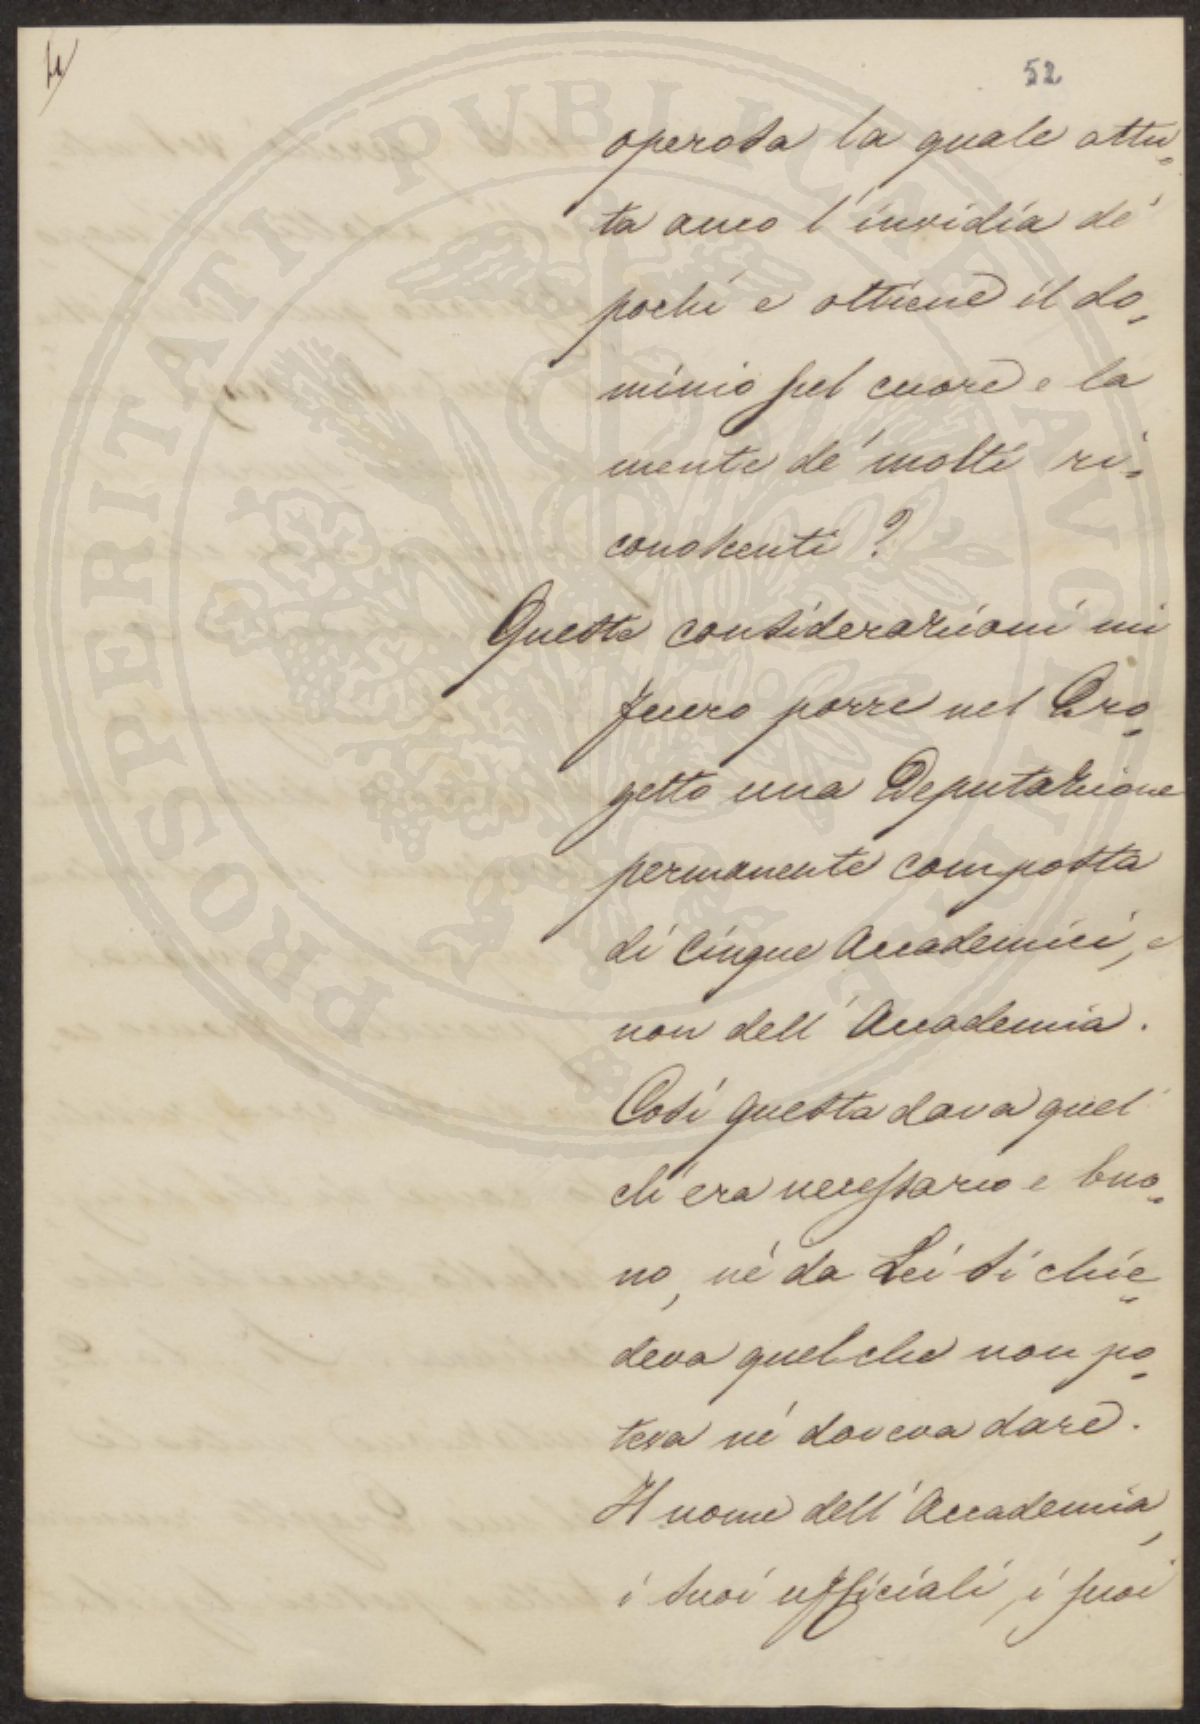 52
operosa la quale attu-
ta anco l'invidia de'
pochi e ottiene il do-
minio sul cuore e la
mente de' molti ri-
conoscenti?
Queste considerazioni mi
fecero porre nel Pro-
getto una Deputazione
permanente composta
di cinque Accademici, e
non dell'Accademia.
Così questa dava quel
ch'era necessario e buo-
no, nè da Lei si chie-
deva quel che non po-
teva nè doveva dare.
Il nome dell'Accademia,
i suoi ufficiali, i suoi
PROSPERITATI PUBLICAE AVGENDAE